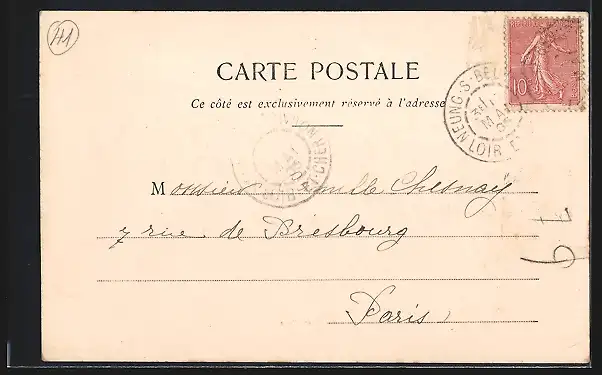 41
CARTE POSTALE
Ce côté est exclusivement réservé à l'adresse
10
NEUNG-S-BEU
LOIR
Monsieur Camille Chesnay
7 rue de Presbourg
Paris
67